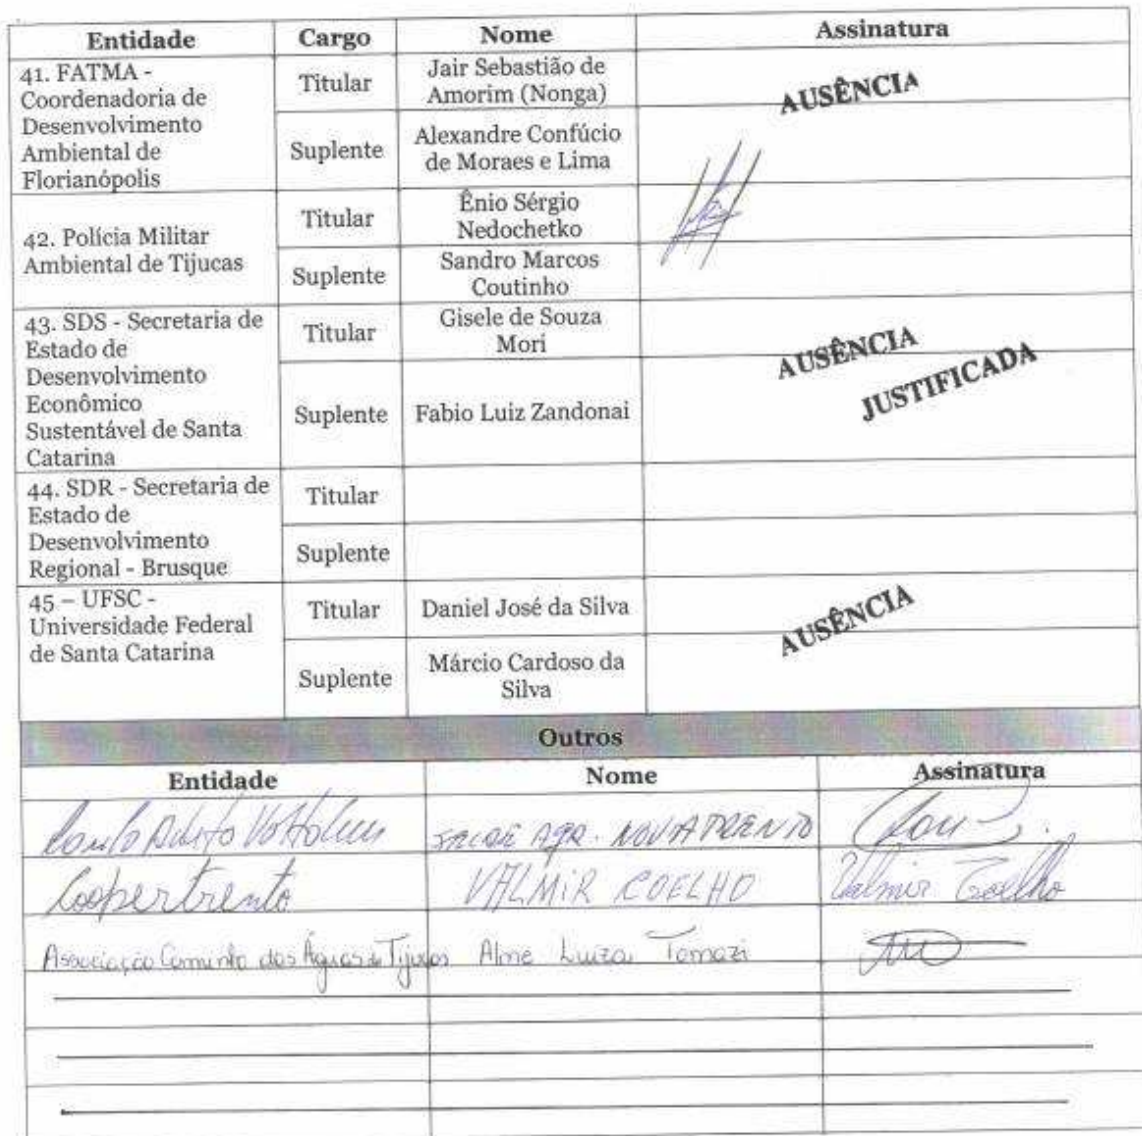 Entidade Cargo Nome Assinatura
41. FATMA -
Coordenadoria de
Desenvolvimento
Ambiental de
Florianópolis
Titular
Jair Sebastião de
Amorim (Nonga)
AUSÊNCIA
Suplente
Alexandre Confúcio
de Moraes e Lima
42. Polícia Militar
Ambiental de Tijucas
Titular
Ênio Sérgio
Nedochetko
Suplente
Sandro Marcos
Coutinho
43. SDS - Secretaria de
Estado de
Desenvolvimento
Econômico
Sustentável de Santa
Catarina
Titular
Gisele de Souza
Mori
AUSÊNCIA
JUSTIFICADA
Suplente
Fabio Luiz Zandonai
44. SDR - Secretaria de
Estado de
Desenvolvimento
Regional - Brusque
Titular
Suplente
45 – UFSC -
Universidade Federal
de Santa Catarina
Titular
Daniel José da Silva
AUSÊNCIA
Suplente
Márcio Cardoso da
Silva
Outros
Entidade Nome Assinatura
AGR. NOVA TRENTO
Coopertrento VALMIR COELHO Valmir Coelho
Associação das Águas de Tijucas Luiza Tomazi